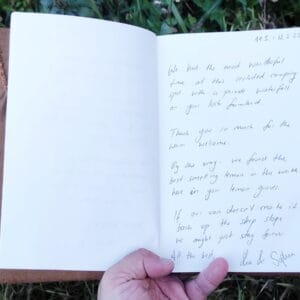 We had the most wonderful
time at this secluded camping
spot with a private waterfall
on your lush farmland.
Thank you so much for the
warm welcome.
By the way, we found the
best-smelling lemon in the
here in your lemon grove.
If our van doesn't make it
back up the steep slope
we might just stay forever.
All the best,